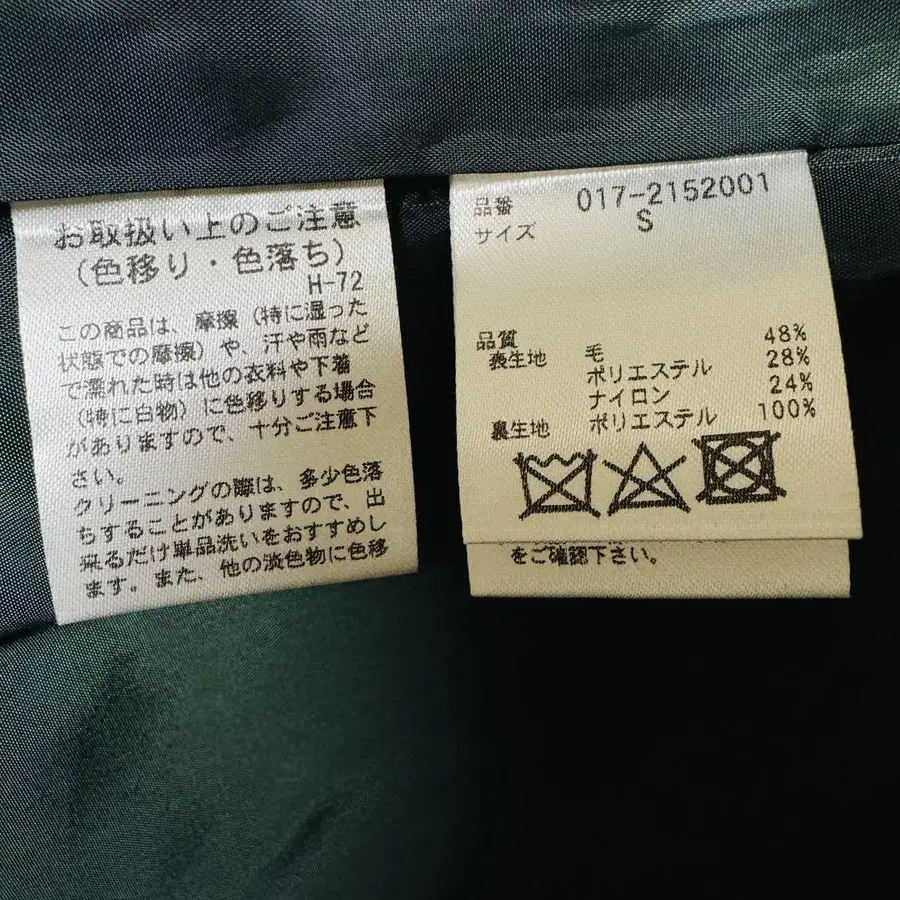 お取扱い上のご注意
（色移り・色落ち）
H-72
この商品は、摩擦（特に湿った
状態での摩擦）や、汗や雨など
で濡れた時は他の衣料や下着
（特に白物）に色移りする場合
がありますので、十分ご注意下
さい。
クリーニングの際は、多少色落
ちすることがありますので、出
来るだけ単品洗いをおすすめし
ます。また、他の淡色物に色移
品番 017-2152001
サイズ S
品質
表生地 毛 48%
ポリエステル 28%
ナイロン 24%
裏生地 ポリエステル 100%
をご確認下さい。